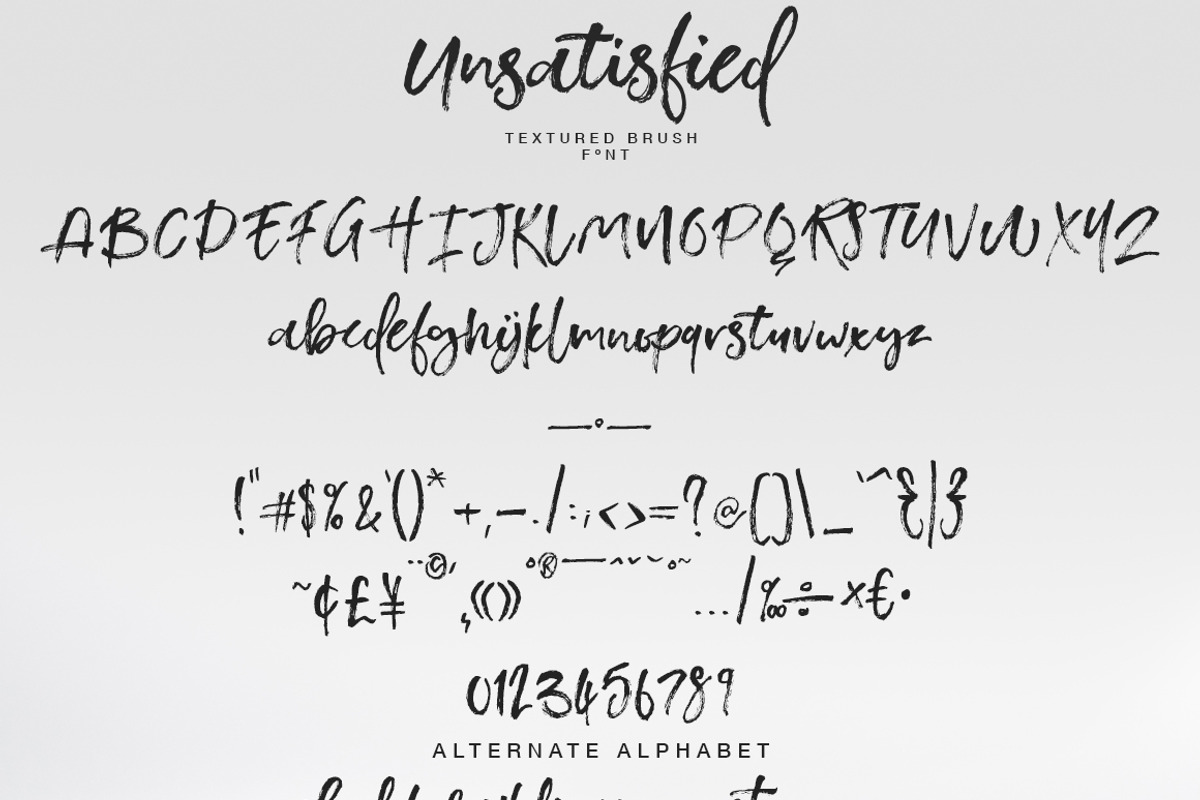 Unsatisfied
TEXTURED BRUSH
FºNT
ABCDEFGHIJKLMNOPQRSTUVWXYZ
abcdefghijklmnopqrstuvwxyz
—°—
!"#$%&'()*+,-./:;<>=?@[]\_`^{|}
~¢£¥¨©´¸«()»°®¯ˆˇ˘˚˜…/‰÷×€•
0123456789
ALTERNATE ALPHABET